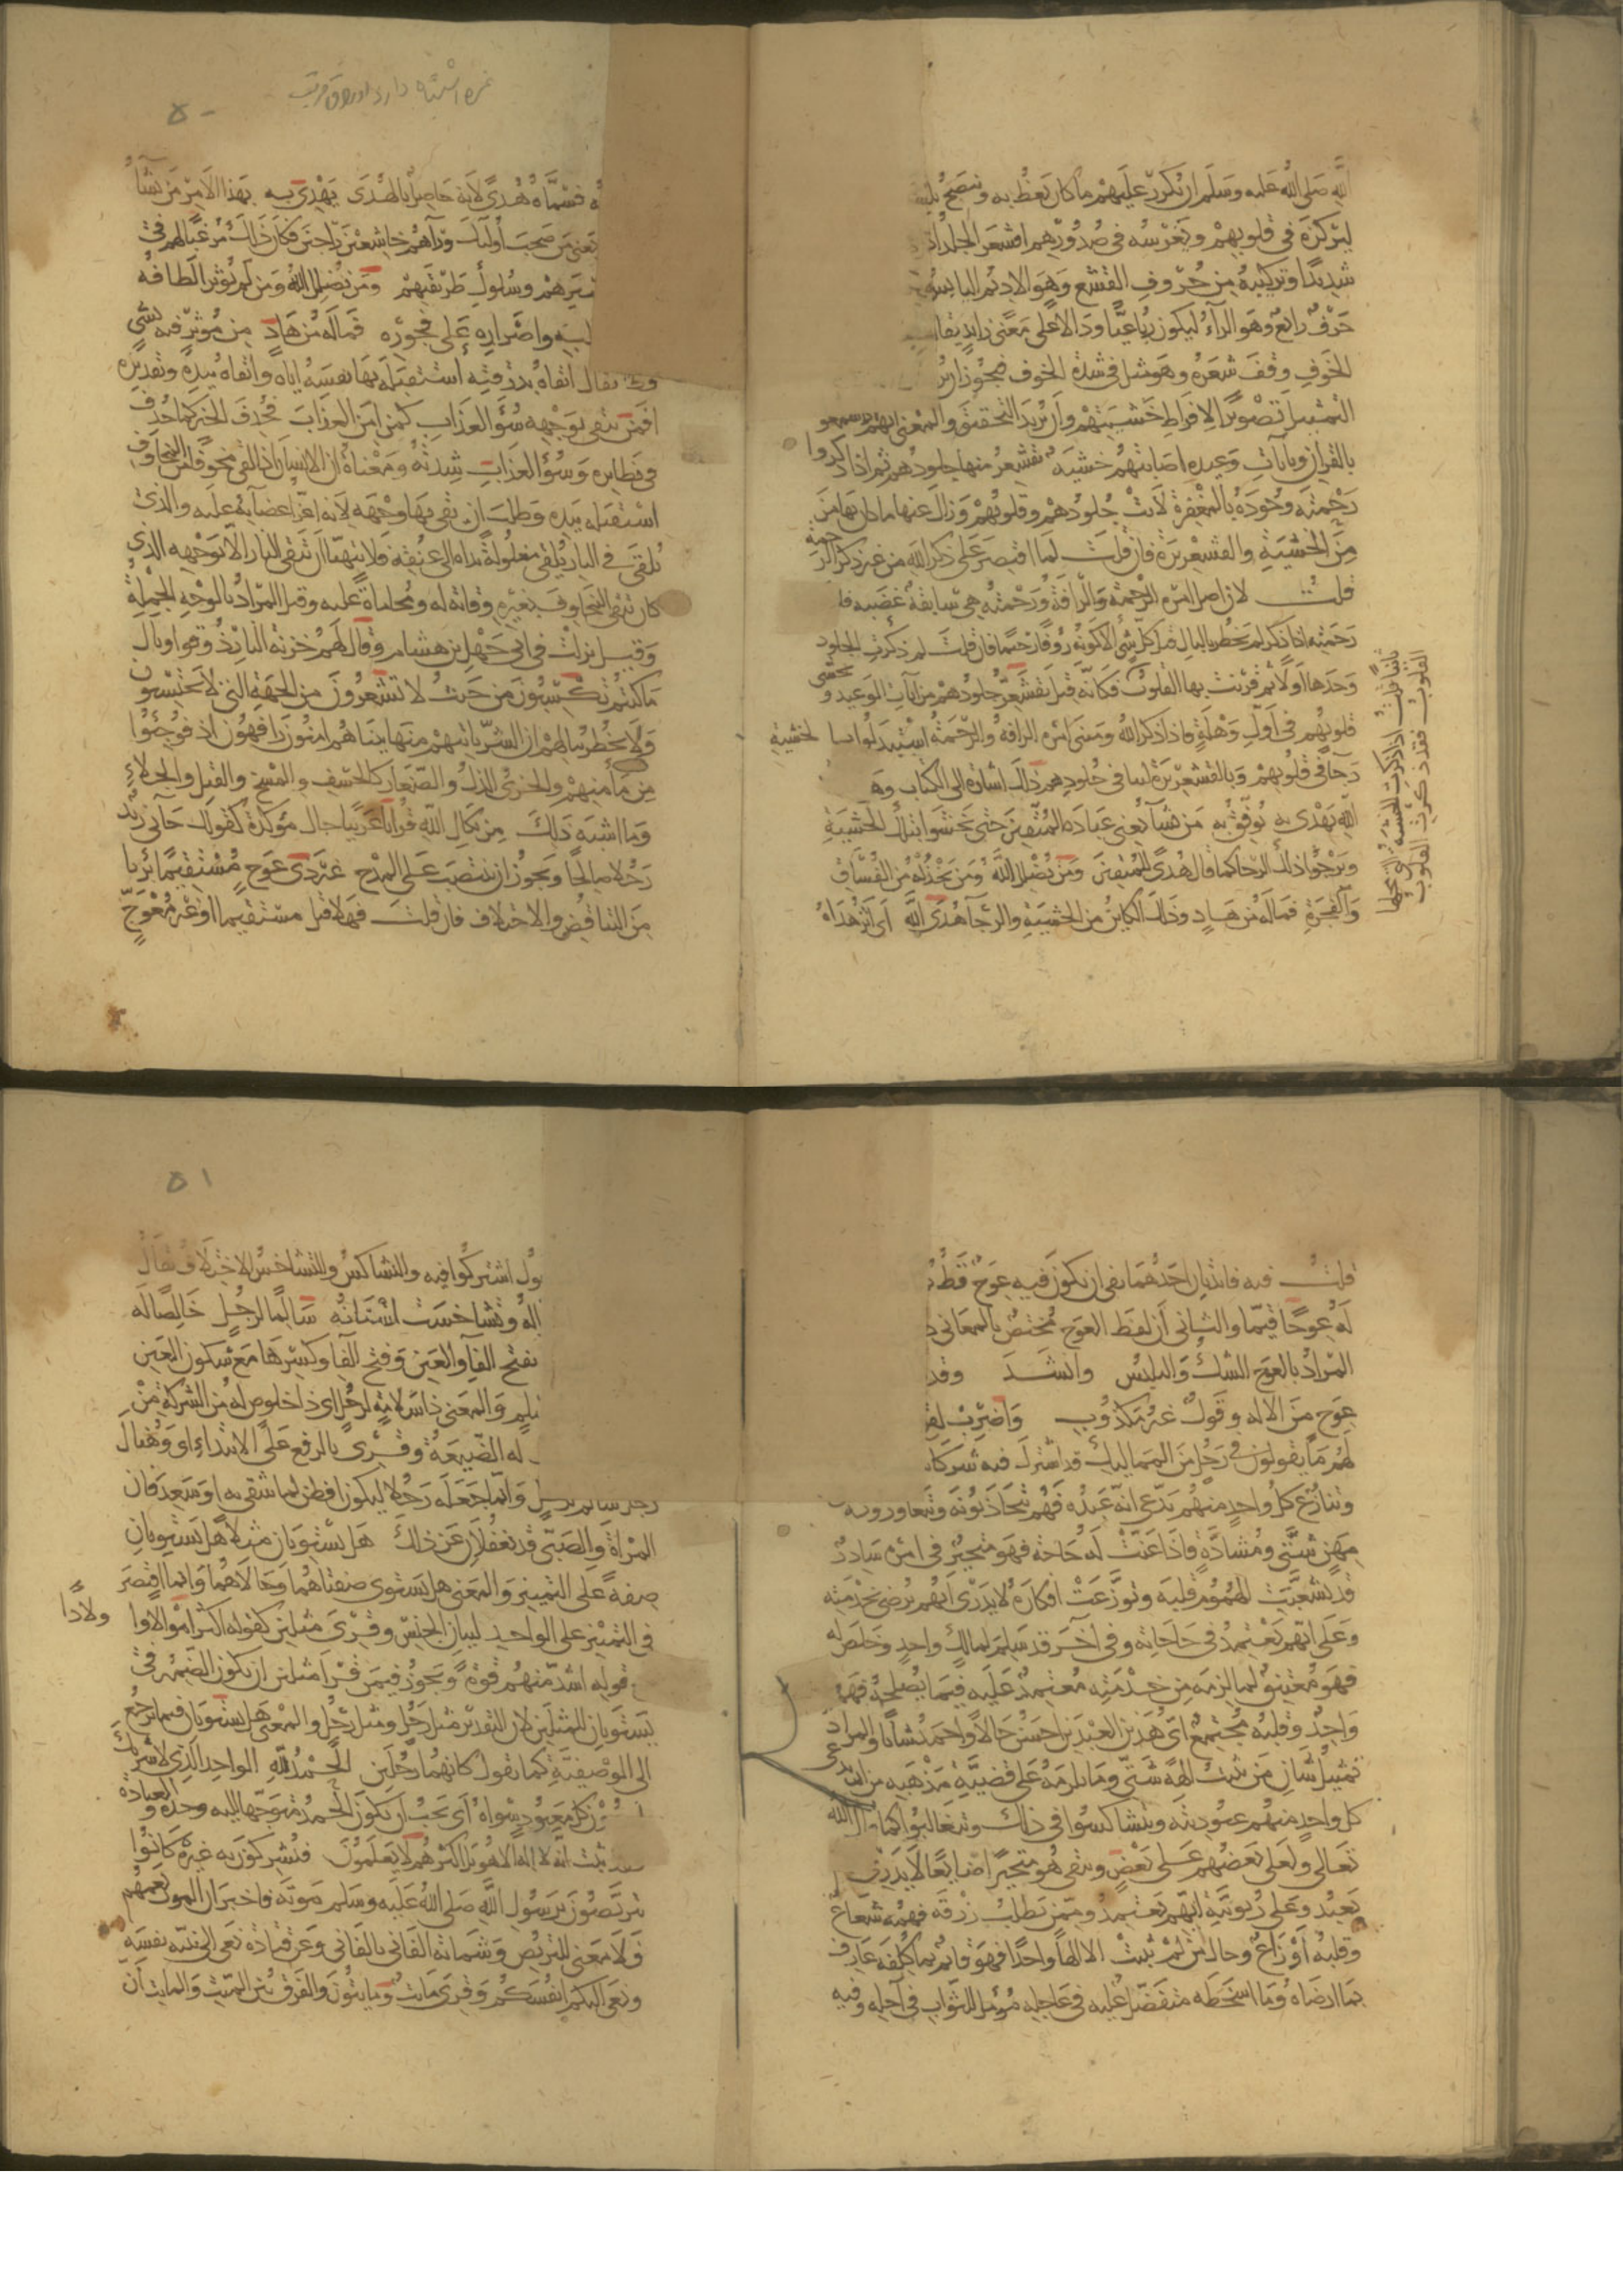 الله صلى الله عليه وسلم ان يكرر عليهم ما كان يعظ به وينصح
ليركزه في قلوبهم ويغرسه في صدورهم اقشعر الجلد اذا
شديدا وتركيبه من حروف القشع وهو الاديم اليابس
حرف رابع وهو الراء ليكون رباعيا ودالا على معنى زايد يقال
الخوف وقف شعره وهو مثل في شدة الخوف فيجوز ان
التمثيل تصويرا لافراط خشيتهم وان يريد التحقيق والمعنى انهم اذا سمعوا
بالقران وبايات وعيده اصابتهم خشية تقشعر منها جلودهم ثم اذا ذكروا
رحمته وجوده بالمغفرة لانت جلودهم وقلوبهم وزال عنها ما كان بها من
من الخشية والقشعريرة فان قلت لم اقتصر على ذكر الله من غير ذكر الرحمة
قلت لان اصل امره الرحمة والرافة ورحمته هي سابقة غضبه فا
رحمته اذا ذكر لم يخطر بالبال قبل كل شي الا كونه روفا رحيما فان قلت لم ذكرت الجلود
وحدها اولا ثم قرنت بها القلوب فكانه قيل تقشعر جلودهم من ايات الوعيد وتخشى
قلوبهم في اول وهلة فاذا ذكر الله ومبنى امره الرافة والرحمة استبدلوا بالخشية
رجاء في قلوبهم وبالقشعريرة لينا في جلودهم ذلك اشارة الى الكتاب وهو
الله يهدي به يوفق به من يشا يعني عباده المتقين حتى يخشوا تلك الخشية
ويرجوا ذلك الرجا كما قال هدى للمتقين ومن يضلل الله ومن يخذله من الفساق
والفجرة فما له من هاد وذلك الكاين من الخشية والرجا هدى الله اي اثر هداه
ثانيا قلت اذا ذكرت الخشية التي محلها
القلوب فقد ذكرت القلوب
فسماه هدى لانه حاصل بالهدى يهدي به بهذا الاثر من يشا
يعني من صحب اوليك وراهم خاشعين راجين فكان ذلك مرغبا لهم في
سيرهم وسلوك طريقتهم ومن يضلل الله ومن لم يوثر الطافه
واصراره على فجوره فما له من هاد من موثر فيه بشي
يقال اتقاه بدرقته استقبله بها نفسه اياه واتقاه بيده وتقديره
افمن يتقي بوجهه سؤ العذاب كمن امن العذاب فحذف الخبر كما حذف
في نظايره وسؤ العذاب شدته ومعناه ان الانسان اذا لقي مخوفا من المخاوف
استقبله بيده وطلب ان يقي بها وجهه لانه اعز اعضايه عليه والذي
يلقى في النار يلقى مغلولة يداه الى عنقه فلا يتهيا ان يتقي النار الا بوجهه الذي
كان يتقي المخاوف بغيره وقاية له ومحاماة عليه وقيل المراد بالوجه الجملة
وقيل نزلت في ابي جهل بن هشام وقال لهم خزنة النار ذوقوا وبال
ما كنتم تكسبون من حيث لا يشعرون من الجهة التي لا يحتسبون
ولا يخطر ببالهم ان الشر ياتيهم منها بينا هم امنون رافهون اذ فوجئوا
من مأمنهم والخزي الذل والصغار كالخسف والمسخ والقتل والجلاء
وما اشبه ذلك من نكال الله قرانا عربيا حال مؤكدة كقولك جآني زيد
رجلا صالحا ويجوز ان ينتصب على المدح غير ذي عوج مستقيما بريا
من التناقض والاختلاف فان قلت فهلا قيل مستقيما او غير معوج
٥٠
قلت فيه فايدتان احدهما نفي ان يكون فيه عوج قط
له عوجا قيما والثاني ان لفظ العوج مختص بالمعاني
المراد بالعوج الشك واللبس وانشد وقد
عوج من الاله وقول غير مكذوب واضرب
لهم ما يقولون في رجل من المماليك قد اشترك فيه شركا
وتنازع كل واحد منهم يدعي انه عبده فهم يتجاذبونه ويتعاورونه
مهن شتى ومشادة فاذا عنت له حاجة فهو متحير في امره سادر
قد تشعبت الهموم قلبه وتوزعت افكاره لا يدري ايهم يرضي بخدمته
وعلى ايهم يعتمد في حاجاته وفي آخر قد سلم لمالك واحد وخلص له
فهو معتنق لما لزمه من خدمته معتمد عليه فيما يصلحه فهمه
واحد وقلبه مجتمع اي هذين العبدين احسن حالا واحمد شانا والمراد
تمثيل شان من يثبت الهة شتى وما يلزمه على قضية مذهبه من ان يدعي
كل واحد منهم عبوديته ويتشاكسوا في ذلك ويتغالبوا كما قال الله
تعالى ولعلى بعضهم على بعض ويبقى هو متحيرا ضايعا لا يدري
يعبد وعلى ربوبية ايهم يعتمد وممن يطلب رزقه فهمه شعاع
وقلبه اوزاع وحال من لم يثبت الا الها واحدا فهو قايم بما كلفه عارف
بما ارضاه وما اسخطه متفضل عليه في عاجله مؤمل للثواب في آجله وفيه
٥١
اشتركوا فيه والتشاكس والتشاخس الاختلاف يقال
وتشاخست اسنانه سالما لرجل خالصا له
بفتح الفا والعين وفتح الفا وكسرها مع سكون العين
والمعنى ذا سلامة لرجل اي ذا خلوص له من الشركة من
له الضيعة وقرئ بالرفع على الابتداء اي وهناك
رجل سالم لرجل وانما جعله رجلا ليكون افطن لما شقي به او سعد فان
المراة والصبي قد يغفلان عن ذلك هل يستويان مثلا هل يستويان
صفة على التمييز والمعنى هل يستوي صفتاهما وحالاهما وانما اقتصر
في التمييز على الواحد لبيان الجنس وقرئ مثلين كقوله اكثر اموالا واولادا
قوله اشد منهم قوة ويجوز فيمن قرا مثلين ان يكون الضمير في
يستويان للمثلين لان التقدير مثل رجل ومثل رجل والمعنى هل يستويان فيما يرجع
الى الوصفية كما تقول كفا بهما رجلين الحمد لله الواحد الذي لا شريك
كل معبود سواه اي يجب ان يكون الحمد متوجها اليه وحده والعبادة
ثبت انه لا اله الا هو بل اكثرهم لا يعلمون فيشركون به غيره كانوا
يتربصون برسول الله صلى الله عليه وسلم موته فاخبر ان الموت يعمهم
فلا معنى للتربص وشماتة الفاني بالفاني وعن قتادة نعى الى نبيه نفسه
ونعى اليكم انفسكم وقرئ مايت ومايتون والفرق بين الميت والمايت ان